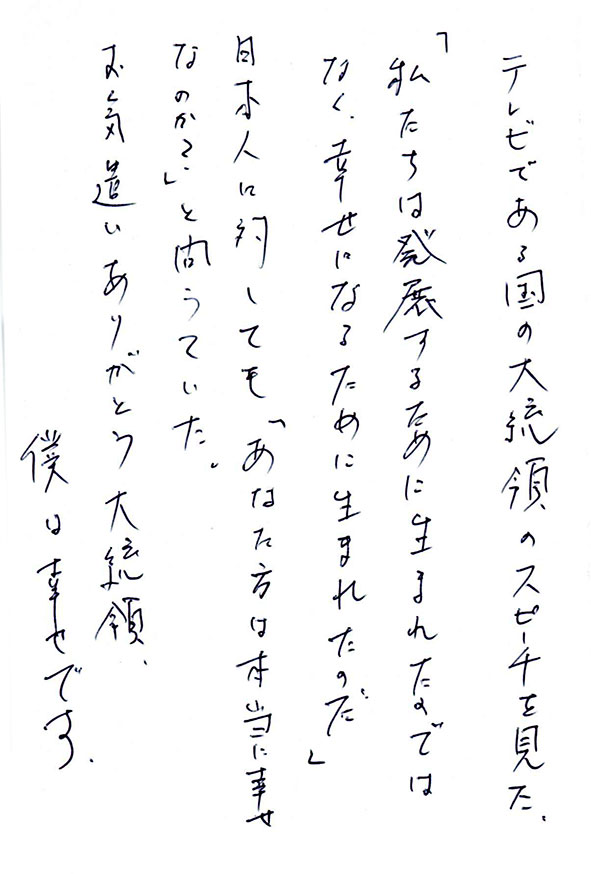 テレビである国の大統領のスピーチを見た。
「私たちは発展するために生まれたのでは
なく、幸せになるために生まれたのだ」
日本人に対しても「あなた方は本当に幸せ
なのか？」と問うていた。
お気遣いありがとう大統領、
僕は幸せです。